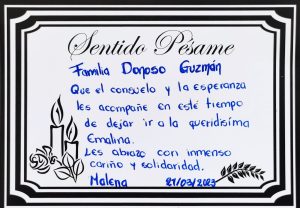 Sentido Pésame
Familia Donoso Guzmán
Que el consuelo y la esperanza
les acompañe en este tiempo
de dejar ir a la queridísima
Emalina.
Les abrazo con inmenso
cariño y solidaridad.
Malena 27/03/2023